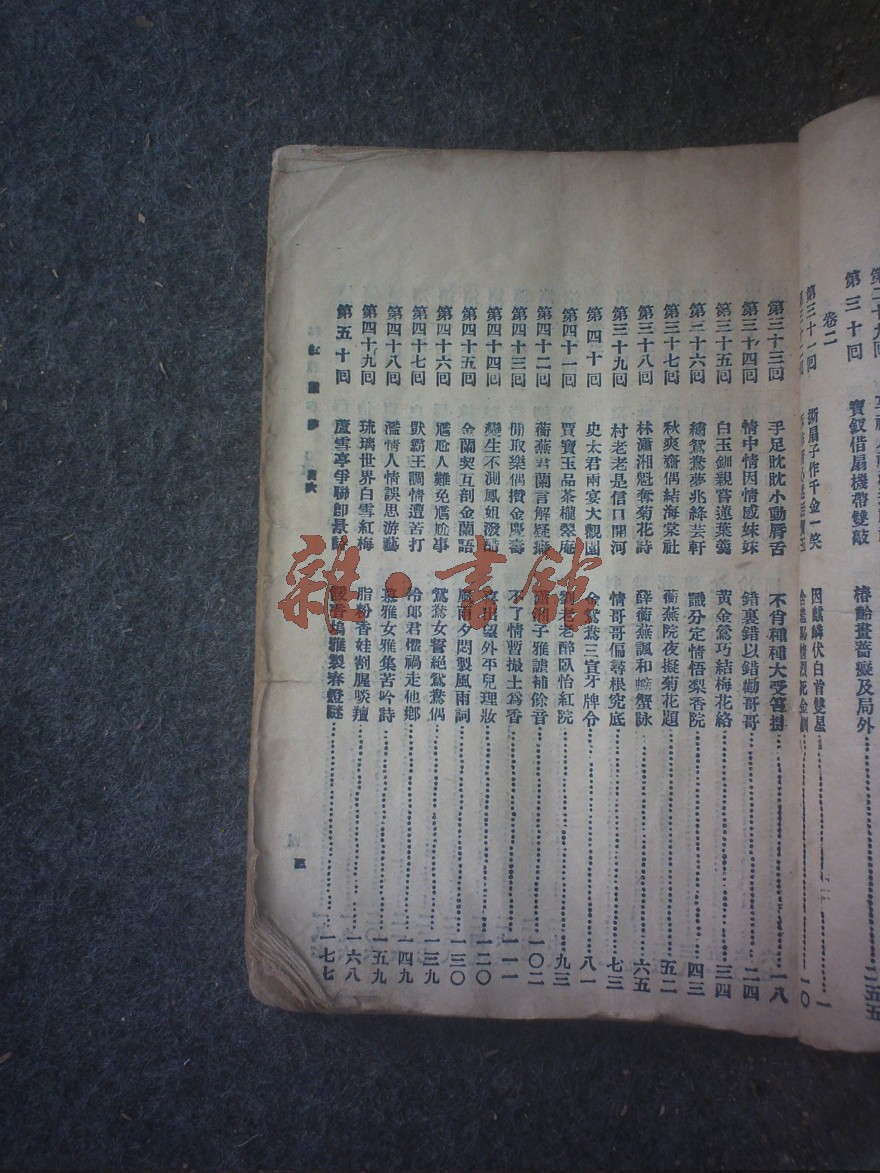 第三十回 寶釵借扇機帶雙敲 椿齡畫薔癡及局外 二五五
卷二
第三十一回 撕扇子作千金一笑 因麒麟伏白首雙星 一
一〇
第三十三回 手足眈眈小動唇舌 不肖種種大受笞撻 一八
第三十四回 情中情因情感妹妹 錯裏錯以錯勸哥哥 二四
第三十五回 白玉釧親嘗蓮葉羹 黃金鶯巧結梅花絡 三四
第三十六回 繡鴛鴦夢兆絳芸軒 識分定情悟梨香院 四三
第三十七回 秋爽齋偶結海棠社 蘅蕪院夜擬菊花題 五二
第三十八回 林瀟湘魁奪菊花詩 薛蘅蕪諷和螃蟹詠 六五
第三十九回 村老老是信口開河 情哥哥偏尋根究底 七三
第四十回 史太君兩宴大觀園 金鴛鴦三宣牙牌令 八一
第四十一回 賈寶玉品茶櫳翠庵 劉老老醉臥怡紅院 九三
第四十二回 蘅蕪君蘭言解疑癖 瀟湘子雅謔補餘音 一〇二
第四十三回 閒取樂偶攢金慶壽 不了情暫撮土為香 一一一
第四十四回 變生不測鳳姐潑醋 喜出望外平兒理妝 一二〇
第四十五回 金蘭契互剖金蘭語 風雨夕悶製風雨詞 一三〇
第四十六回 尷尬人難免尷尬事 鴛鴦女誓絕鴛鴦偶 一三九
第四十七回 獃霸王調情遭苦打 冷郎君懼禍走他鄉 一四九
第四十八回 濫情人情誤思游藝 慕雅女雅集苦吟詩 一五九
第四十九回 琉璃世界白雪紅梅 脂粉香娃割腥啖羶 一六八
第五十回 蘆雪亭爭聯卽景詩 暖香塢雅製春燈謎 一七七
紅樓夢 目次
三
雜·書館